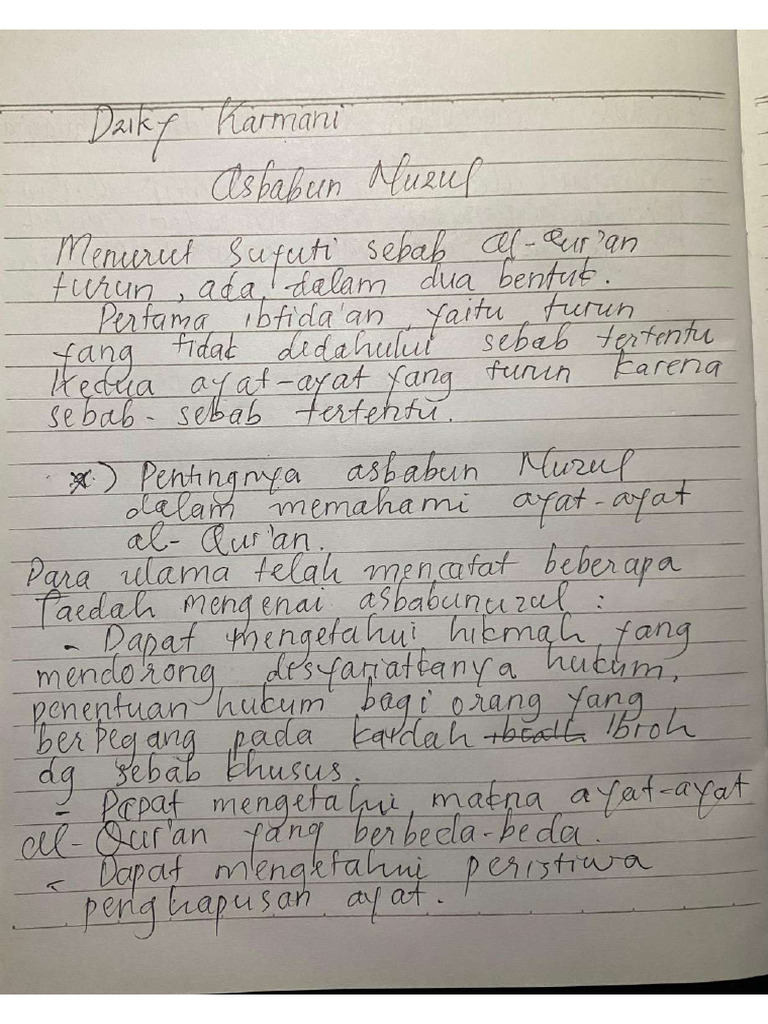 Dziky Karmani
Asbabun Nuzul
Menurut Suyuti sebab al-Qur'an
turun, ada dalam dua bentuk.
Pertama ibtida'an, yaitu turun
yang tidak didahului sebab tertentu
Kedua ayat-ayat yang turun karena
sebab-sebab tertentu.
*) Pentingnya asbabun Nuzul
dalam memahami ayat-ayat
al-Qur'an.
Para ulama telah mencatat beberapa
faedah mengenai asbabunuzul :
- Dapat mengetahui hikmah yang
mendorong disyariatkanya hukum,
penentuan hukum bagi orang yang
berpegang pada kaidah Ibroh
dg sebab khusus.
- Dapat mengetahui makna ayat-ayat
al-Qur'an yang berbeda-beda.
- Dapat mengetahui peristiwa
penghapusan ayat.